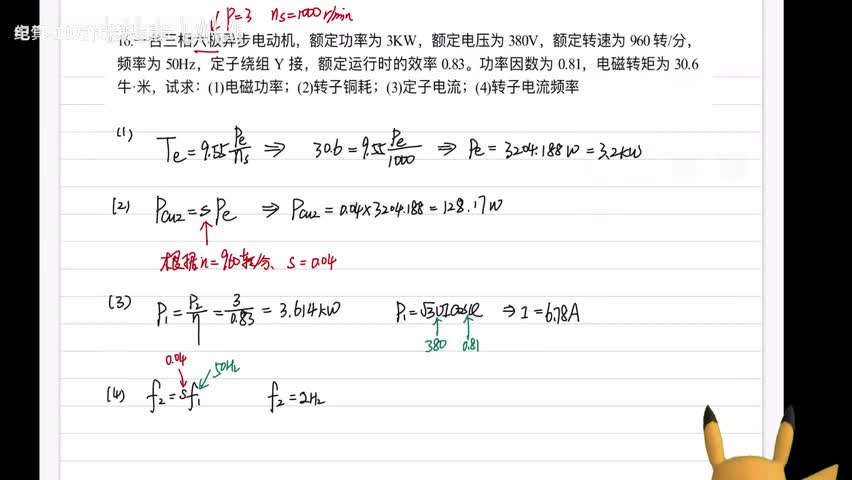 P=3 ns=1000r/min
16.一台三相六极异步电动机，额定功率为 3KW，额定电压为 380V，额定转速为 960 转/分，
频率为 50Hz，定子绕组 Y 接，额定运行时的效率 0.83。功率因数为 0.81，电磁转矩为 30.6
牛·米，试求：(1)电磁功率；(2)转子铜耗；(3)定子电流；(4)转子电流频率
(1) Te=9.55 Pe/ns ⇒ 30.6=9.55 Pe/1000 ⇒ Pe=3204.188W=3.2kW
(2) Pcu2=sPe ⇒ Pcu2=0.04×3204.188=128.17W
根据n=960转/分、s=0.04
(3) P₁=P₂/η=3/0.83=3.614kW P₁=√3UIcosφ ⇒ I=6.78A
380 0.81
0.04 50Hz
(4) f₂=sf₁ f₂=2Hz